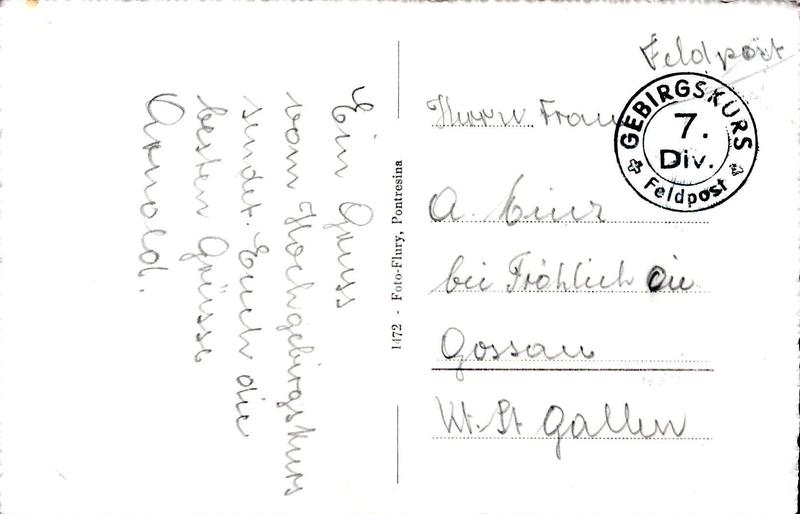 Ein Gruss
vom Hochgebirgskurs
sendet Euch die
besten Grüsse
Arnold.
1472 - Foto-Flury, Pontresina
Feldpost
GEBIRGSKURS
7.
Div.
Feldpost
Herrn Frau
A.
bei Fröhlich
Gossau
Kt. St Gallen